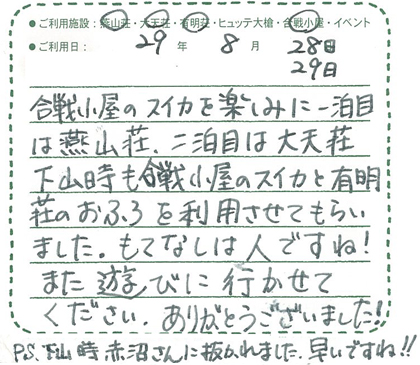 ●ご利用施設：燕山荘・大天荘・有明荘・ヒュッテ大槍・合戦小屋・イベント
●ご利用日： 29 年 8 月 28日
29日
合戦小屋のスイカを楽しみに一泊目
は燕山荘、二泊目は大天荘
下山時も合戦小屋のスイカと有明
荘のおふろを利用させてもらい
ました。もてなしは人ですね!
また遊びに行かせて
ください。ありがとうございました!
P.S. 下山時赤沼さんに抜かれました。早いですね!!